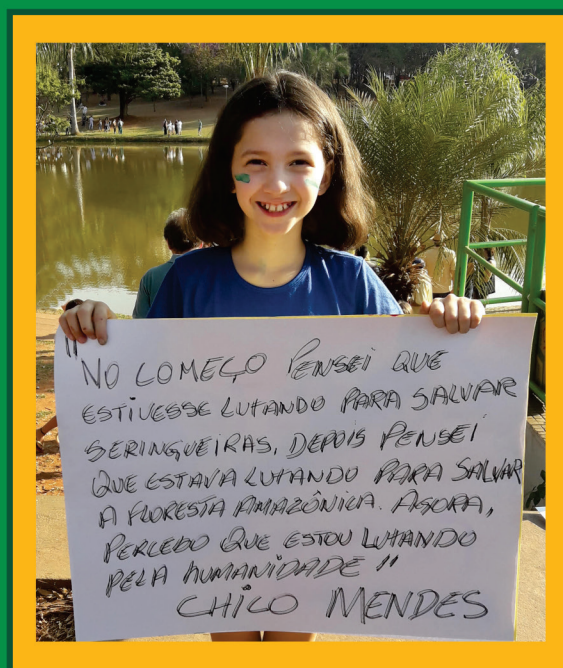 "NO COMEÇO PENSEI QUE
ESTIVESSE LUTANDO PARA SALVAR
SERINGUEIRAS, DEPOIS PENSEI
QUE ESTAVA LUTANDO PARA SALVAR
A FLORESTA AMAZÔNICA. AGORA,
PERCEBO QUE ESTOU LUTANDO
PELA HUMANIDADE"
CHICO MENDES